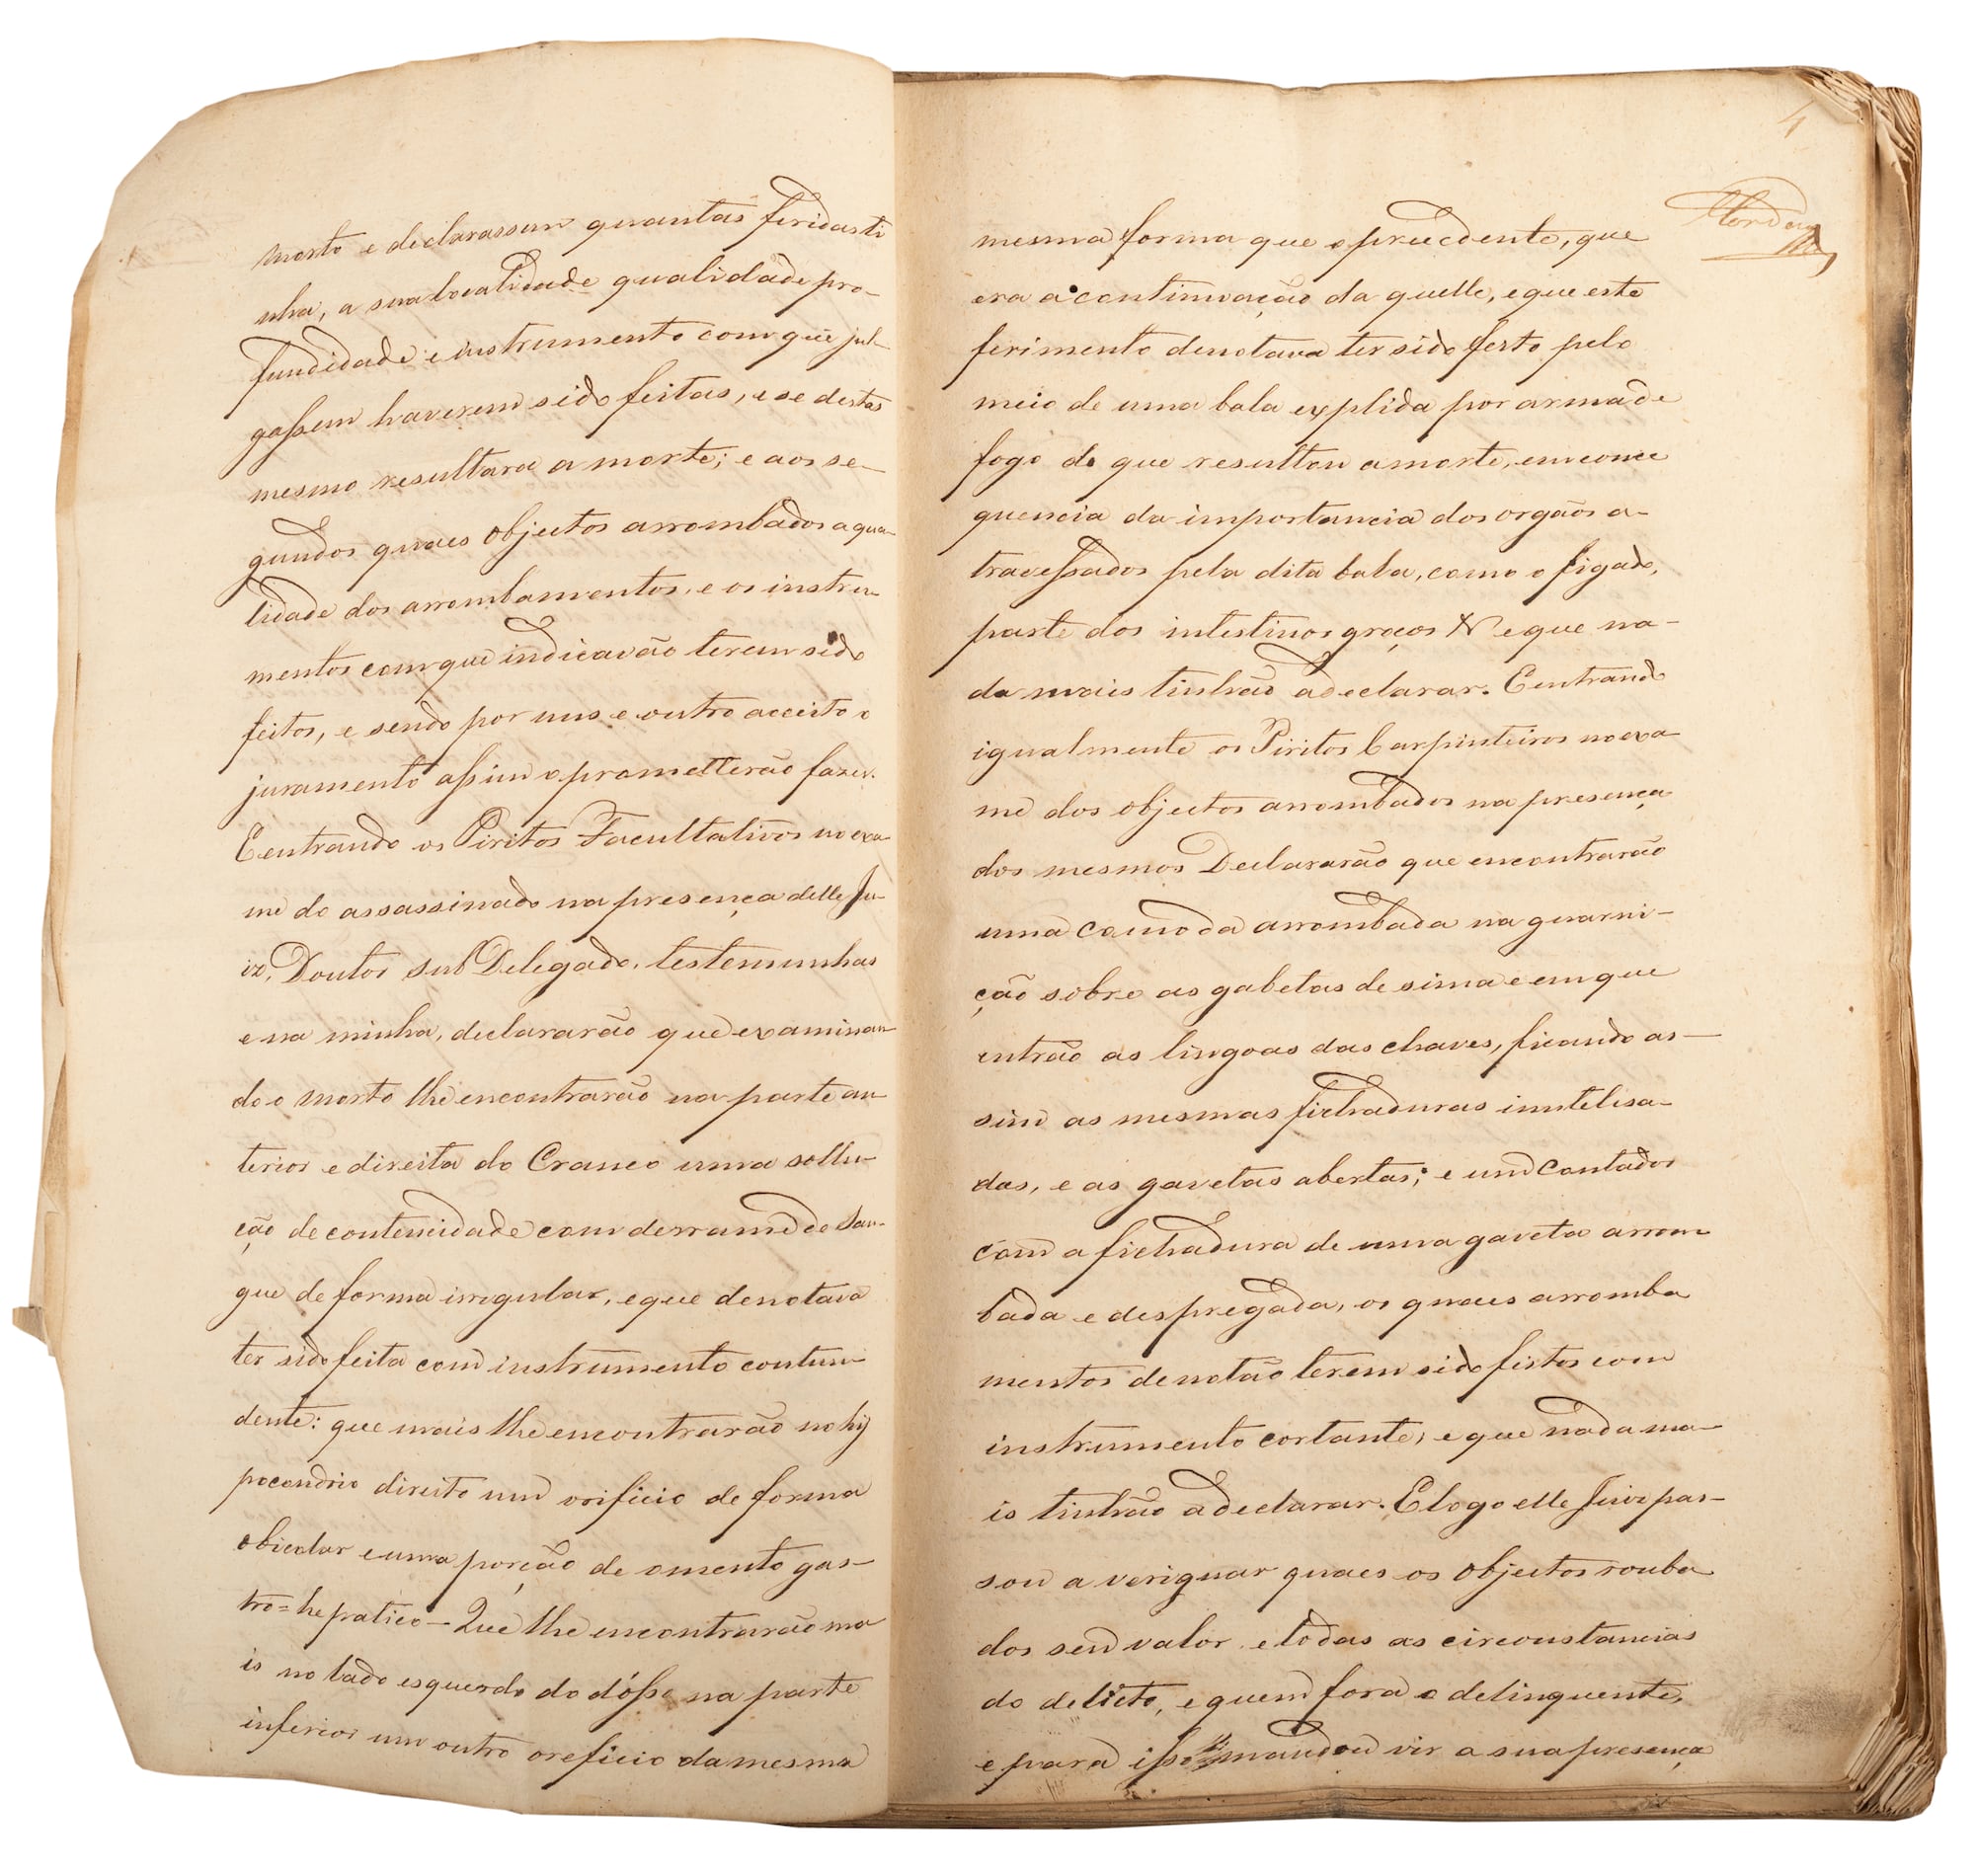 morto e declarassem quantas feridas ti
nha, a sua localidade qualidade pro-
fundidade e instrumento com que jul-
gassem haverem sido feitas, e se destas
mesmo resultara a morte; e aos se-
gundos quaes objectos arrombados a qua-
lidade dos arrombamentos, e os instru-
mentos com que indicavão terem sido
feitos, e sendo por uns e outro acceito o
juramento assim o prometterão fazer.
E entrando os Piritos Facultativos no exa-
me do assassinado na presença delle Ju-
iz, Doutor sub Delegado, testemunhas
e na minha, declararão que examinan-
do o morto lhe encontrarão na parte an-
terior e direita do Craneo uma sollu-
ção de conteneidade com derrame de San-
gue de forma irregular, e que denotava
ter sido feita com instrumento contun-
dente: que mais lhe encontrarão no hy
pocondrio direito um orificio de forma
obicular e uma porção de omento gas-
tro=hepatico - Que lhe encontrarão ma
is no lado esquerdo do dósso na parte
inferior um outro oreficio da mesma
4
mesma forma que o precedente, que
era a continuação da quelle, e que este
ferimento denotava ter sido feito pelo
meio de uma bala explida por arma de
fogo do que resultou a morte, em conce
quencia da importancia dos orgãos a-
travessados pela dita bala, como o figado,
parte dos intestinos groços & e que na-
da mais tinhão a declarar. E entrando
igualmente os Piritos Carpinteiros no exa-
me dos objectos arrombados na presença
dos mesmos Declararão que encontrarão
uma comoda arrombada na guarni-
ção sobre as gabetas de sima e em que
entrão as lingoas das chaves, ficando as-
sim as mesmas fichaduras inutelisa-
das, e as gavetas abertas; e um Contador
com a fichadura de uma gaveta arrom
bada e despregada, os quaes arromba
mentos denotão terem sido feitos com
instrumento cortante, e que nada ma-
is tinhão a declarar. E logo elle Juiz pas-
sou a veriguar quaes os objectos rouba
dos seu valor e todas as circonstancias
do delicto, e quem fora o delinquente,
e para isso mandou vir a sua presença